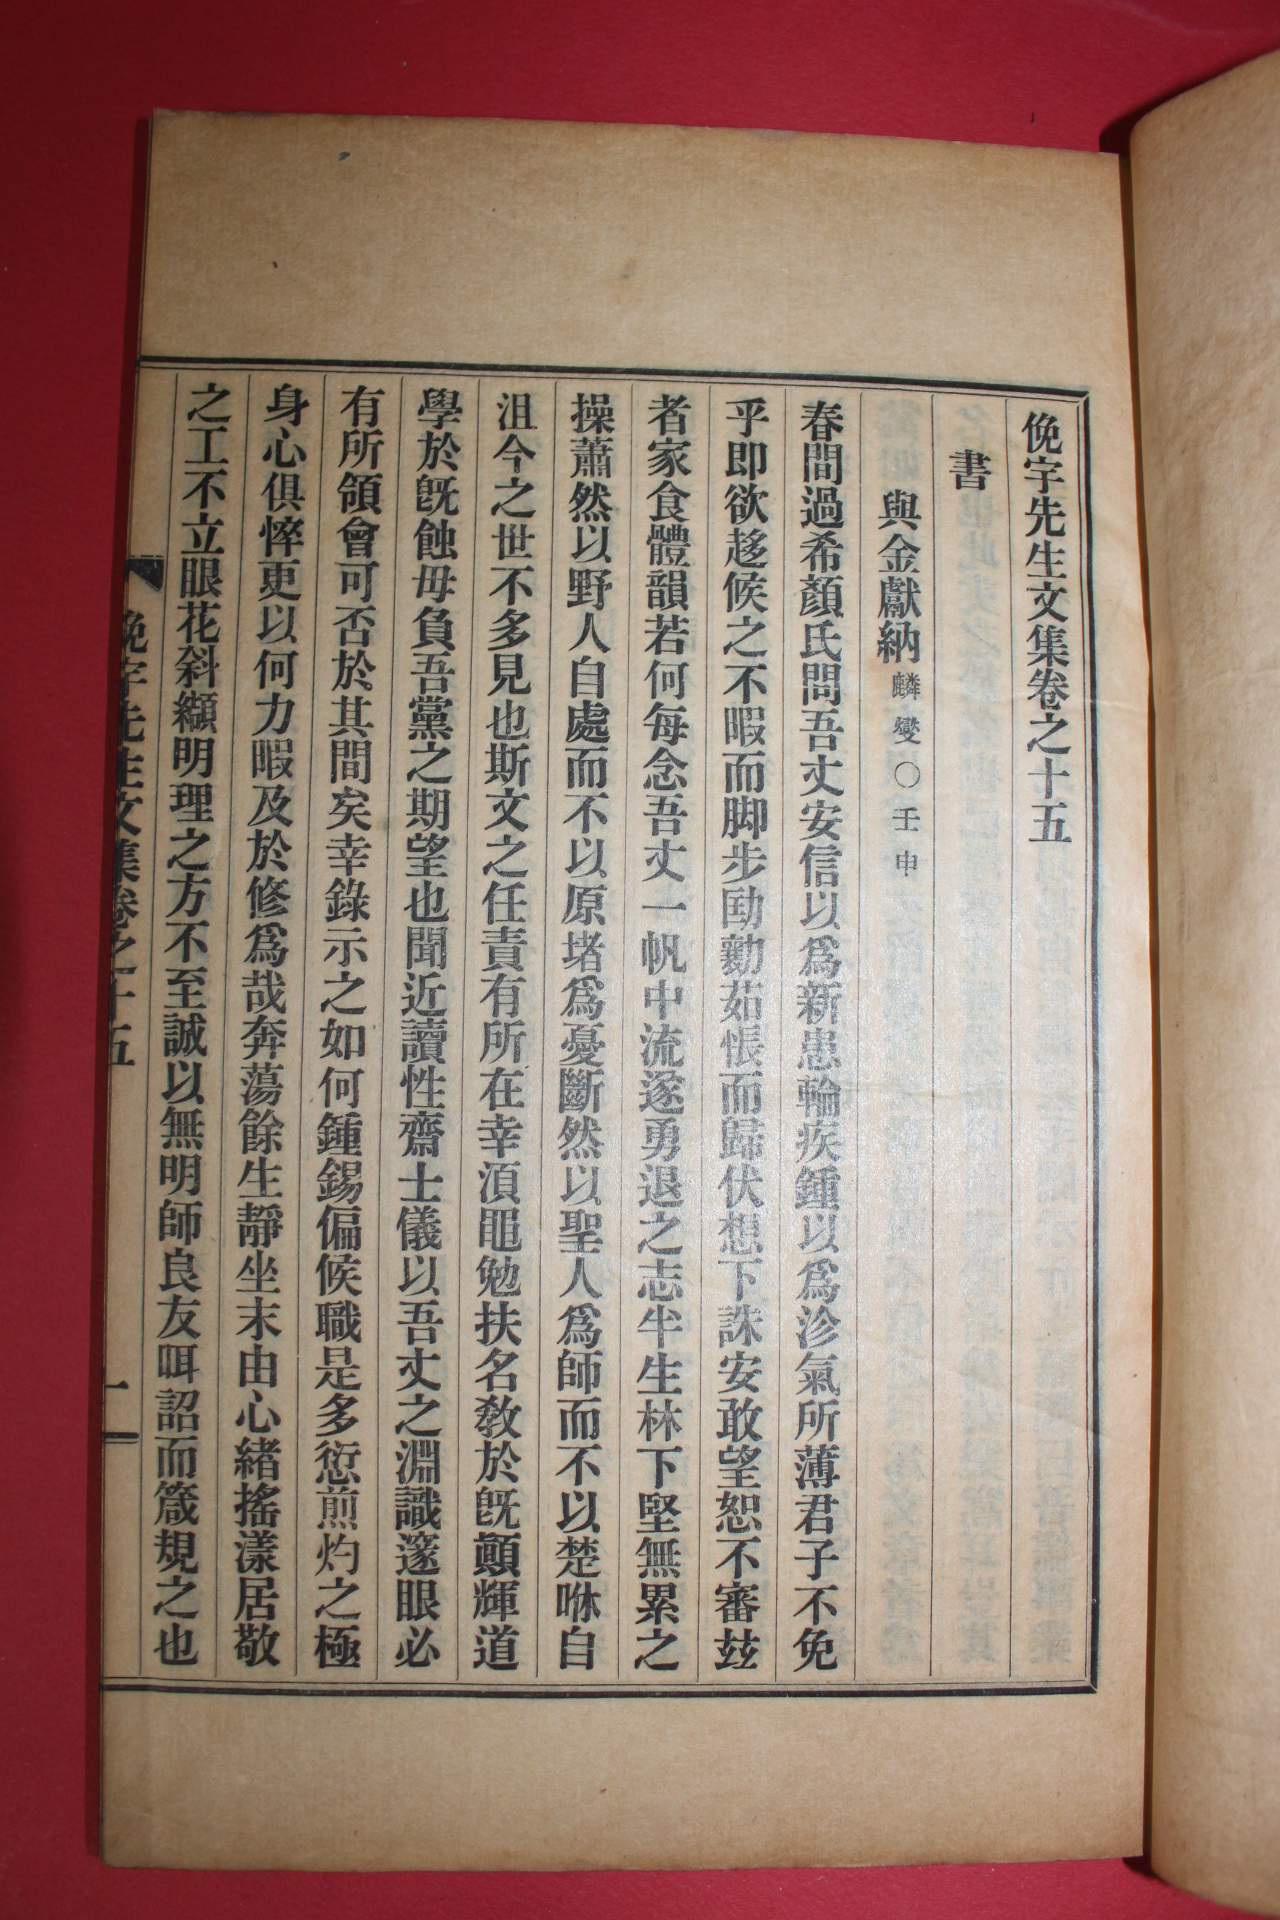 俛宇先生文集卷之十五
書
與金獻納麟燮○壬申
春間過希顏氏問吾丈安信以爲新患輪疾鍾以爲沴氣所薄君子不免
乎卽欲趍候之不暇而脚步劻勷茹悵而歸伏想下誅安敢望恕不審玆
者家食體韻若何每念吾丈一帆中流遂勇退之志半生林下堅無累之
操蕭然以野人自處而不以原堵爲憂斷然以聖人爲師而不以楚咻自
沮今之世不多見也斯文之任責有所在幸湏黽勉扶名敎於旣顚輝道
學於旣蝕毋負吾黨之期望也聞近讀性齋士儀以吾丈之淵識邃眼必
有所領會可否於其間矣幸錄示之如何鍾錫偏候職是多愆煎灼之極
身心俱悴更以何力暇及於修爲哉奔蕩餘生靜坐末由心緖搖漾居敬
之工不立眼花斜纈明理之方不至誠以無明師良友咡詔而箴規之也
俛宇先生文集卷之十五
一